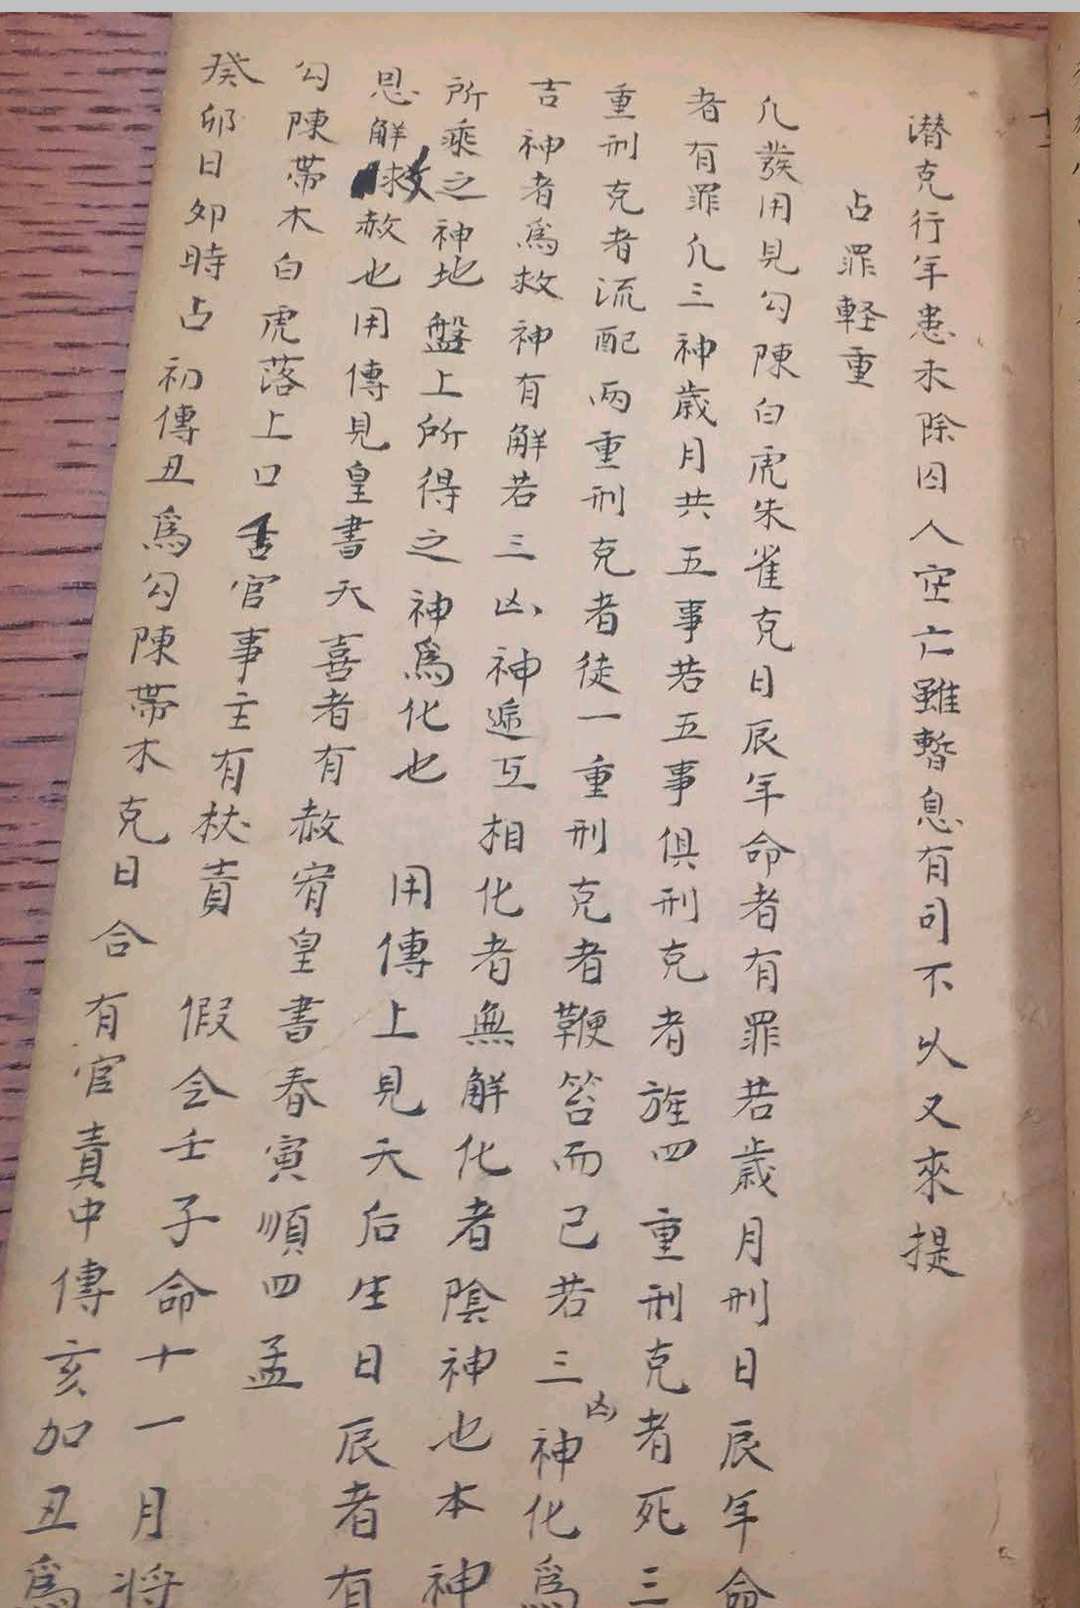 潜克行年患未除囚人空亡雖暫息有司不以又來提
占罪軽重
凢發用見勾陳白虎朱雀克日辰年命者有罪若歲月刑日辰年命
者有罪凢三神歲月共五事若五事俱刑克者旌四重刑克者死三
重刑克者流配兩重刑克者徒一重刑克者鞭笞而已若三凶神化爲
吉神者爲救神有解若三凶神遞互相化者無解化者陰神也本神
所乘之神地盤上所得之神爲化也 用傳上見天后生日辰者有
恩解救赦也用傳見皇書天喜者有赦宥皇書春寅順四孟
勾陳帶木白虎落上口舌官事主有杖責 假令壬子命十一月將
癸卯日卯時占初傳丑爲勾陳帶木克日合有官責中傳亥加丑爲